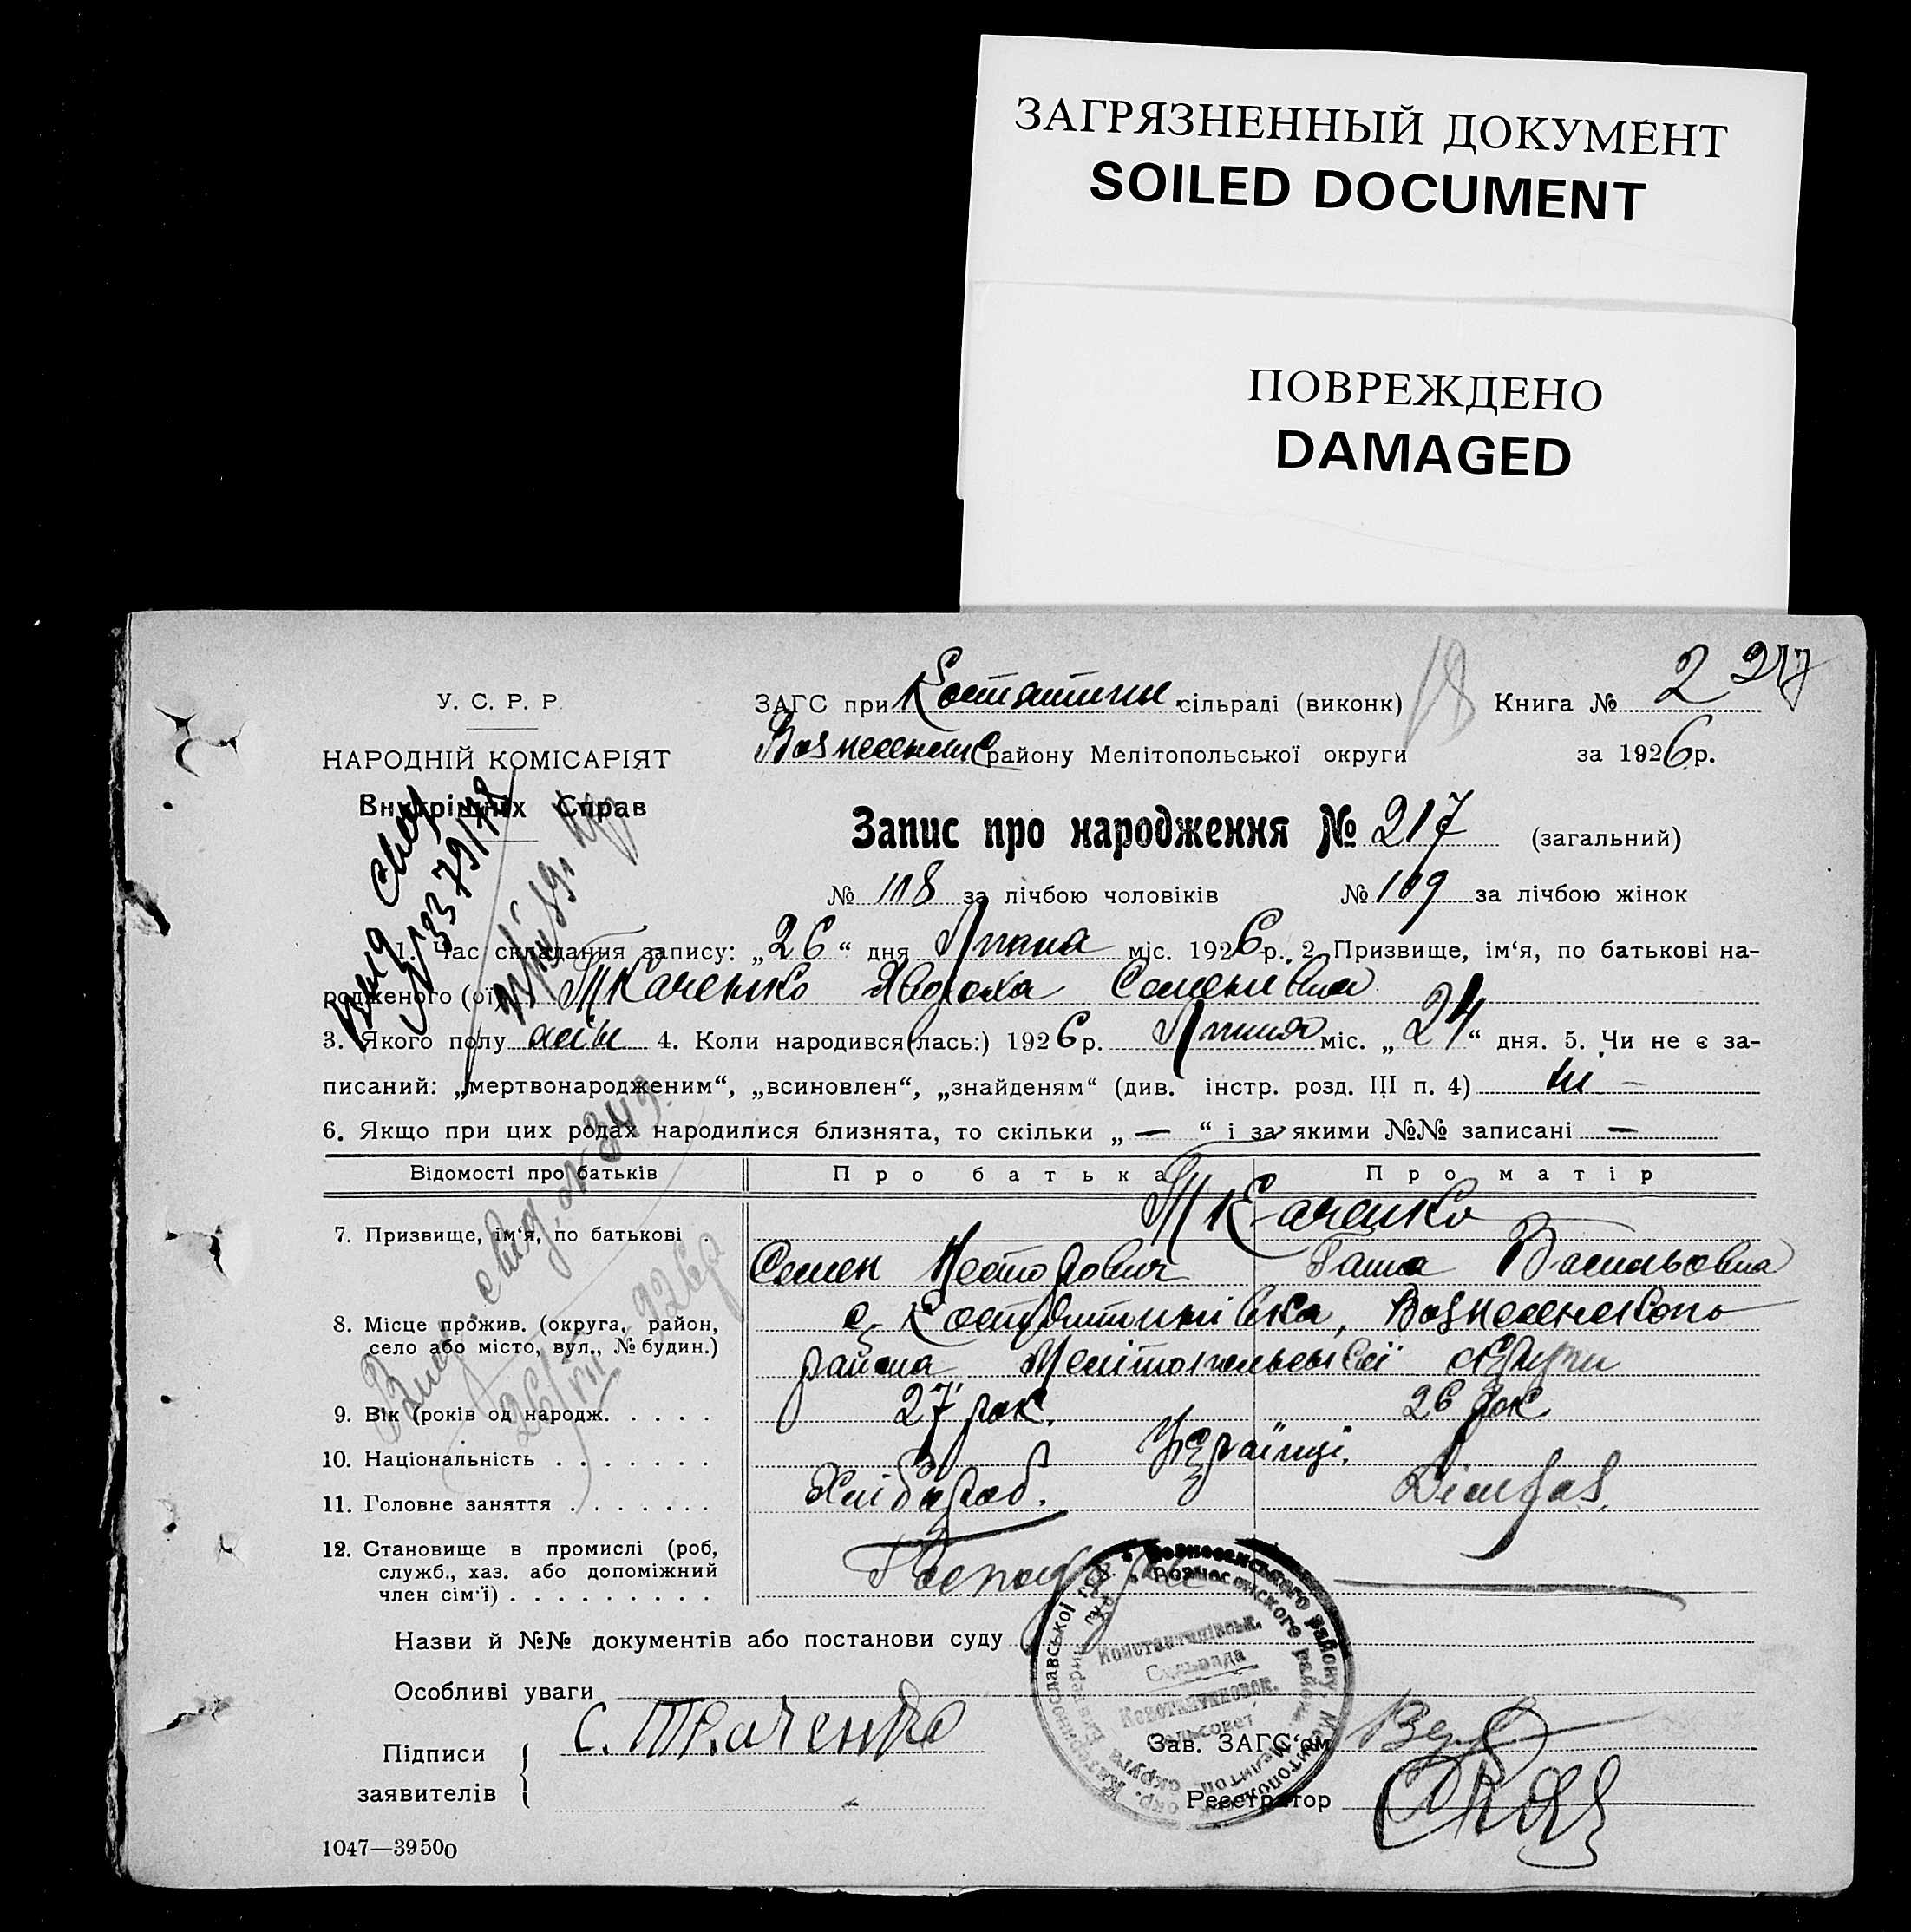 ЗАГРЯЗНЕННЫЙ ДОКУМЕНТ
SOILED DOCUMENT
ПОВРЕЖДЕНО
DAMAGED
2 217
У. С. Р. Р.
ЗАГС при Костянтинів. сільраді (виконк) 18 Книга №
НАРОДНІЙ КОМІСАРІЯТ
Вознесенськ району Мелітопольської округи за 1926 р.
Внутрішніх Справ
Запис про народження № 217 (загальний)
№ 108 за лічбою чоловіків № 109 за лічбою жінок
1. Час складання запису: „26“ дня Липня міс. 1926 р. 2. Призвище, ім‘я, по батькові на-
родженого (ої) Ткаченко Явдоха Семенівна
3. Якого полу жін 4. Коли народився(лась:) 1926 р. Липня міс. „24“ дня. 5. Чи не є за-
писаний: „мертвонародженим“, „всиновлен“, „знайденям“ (див. інстр. розд. III п. 4) ні —
6. Якщо при цих родах народилися близнята, то скільки „ — “ і за якими №№ записані —
Відомості про батьків Про батька Про матір
Ткаченко
7. Призвище, ім‘я, по батькові .
Семен Несторович Ганна Васильовна
8. Місце прожив. (округа, район, с. Костянтинівка, Вознесенского
село або місто, вул., № будин.) района Мелітопольської округи
9. Вік (років од народж. . . . . 27 рок. 26 рок
10. Національність . . . . . . . Українці.
11. Головне заняття . . . . . . . Хлібороб.
12. Становище в промислі (роб,
служб., хаз. або допоміжний
член сім‘ї) . . . . . . . . . —
Назви й №№ документів або постанови суду
Особливі уваги
Підписи
заявителів
С. Ткаченко
Зав. ЗАГС‘ом
Реєстратор
1047—39500
Константинівськ.
Сельрада
Константиновск.
сельсовет